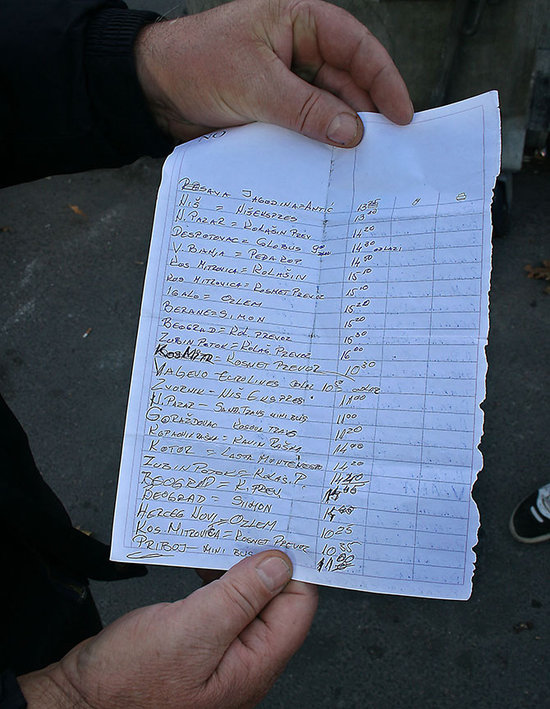 NO
RESAVA JAGODINA=ANTIĆ 13 25 M
NIŠ = NIŠEKSPRES 13 20
N. PAZAR = KOLAŠIN PREV. 14 20
DESPOTOVAC = GLOBUS 14 30 ODLAZI
V. BANJA = PEDA ROT 14 50
KOS. MITROVICA = KOLAŠIN 15 10
KOS. MITROVICA = KOSMET PREVOZ 15 10
IGALO = OZLEM 15 20
BERANE = SIMON 15 20
BEOGRAD = KOL PREVOZ 15 30
ZUBIN POTOK = KOLAŠ. PREVOZ 16 00
KOS. MITR = KOSMET PREVOZ 10 30
VALJEVO = EUROLINES
ZVORNIK = NIŠ EKSPRES 11 00
N. PAZAR = MINIBUS 11 00
GORAŽDEVAC = KOSOVA TRANS 11 20
= RAVIN RAŠKA 14 10
KOTOR = LASTA MONTENEGRO 14 20
ZUBIN POTOK = KOLAŠ. P 14 40
BEOGRAD = K PREV 14 45
BEOGRAD = SIMON
HERCEG NOVI = OZLEM 10 25
KOS. MITROVICA = KOSMET PREVOZ 10 55
PRIBOJ - MINI BUS 11 00